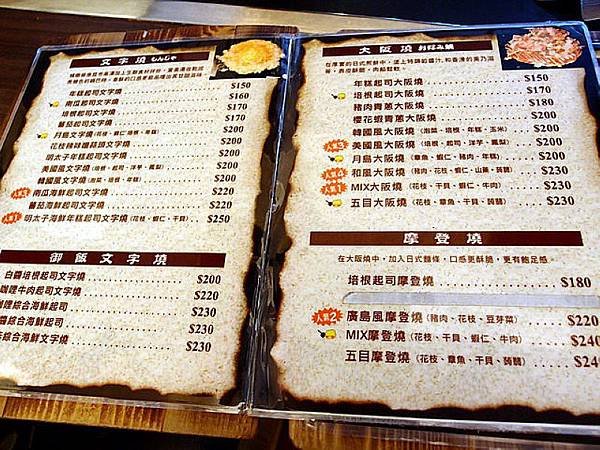 文字燒 もんじゃ
年糕起司文字燒 $150
南瓜起司文字燒 $160
培根起司文字燒 $170
蕃茄起司文字燒 $170
月島文字燒(花枝、蝦仁、培根、年糕) $200
花枝辣味噌蒜頭文字燒 $200
明太子年糕起司文字燒 $200
美國風文字燒(培根、起司、洋芋、鳳梨) $200
韓國風文字燒(泡菜、培根、年糕) $200
南瓜海鮮起司文字燒 $220
蕃茄海鮮起司文字燒 $220
人氣1 明太子海鮮年糕起司文字燒(花枝、蝦仁、干貝) $250
御飯文字燒
白醬培根起司文字燒 $200
咖哩牛肉起司文字燒 $220
咖哩綜合海鮮起司 $230
醬綜合海鮮起司 $230
綜合海鮮文字燒 $230
大阪燒 お好み燒
年糕起司大阪燒 $150
培根起司大阪燒 $170
豬肉青蔥大阪燒 $180
櫻花蝦青蔥大阪燒 $200
韓國風大阪燒(泡菜、培根、年糕、玉米) $200
美國風大阪燒(培根、起司、洋芋、鳳梨) $200
月島大阪燒(章魚、蝦仁、豬肉、年糕) $200
和風大阪燒(豬肉、花枝、蝦仁、山藥、蒟蒻) $230
MIX大阪燒(花枝、干貝、蝦仁、牛肉) $230
五目大阪燒(花枝、章魚、干貝、蒟蒻) $230
摩登燒
在大阪燒中，加入日式麵條，口感更酥脆，更有飽足感。
培根起司摩登燒 $180
人氣2 廣島風摩登燒(豬肉、花枝、豆芽菜) $220
MIX摩登燒(花枝、干貝、蝦仁、牛肉) $240
五目摩登燒(花枝、章魚、干貝、蒟蒻) $24